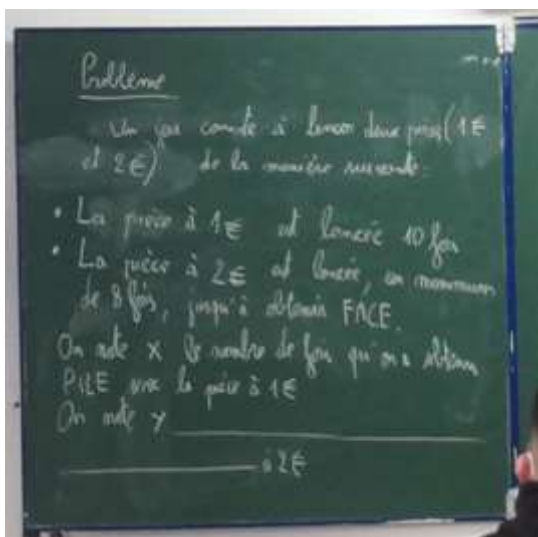 Problème
Un jeu consiste à lancer deux pièces (1€
et 2€) de la manière suivante :
• La pièce à 1€ est lancée 10 fois
• La pièce à 2€ est lancée, un maximum
de 8 fois, jusqu'à obtenir FACE.
On note X le nombre de fois qu'on a obtenu
PILE avec la pièce à 1€
On note Y
à 2€